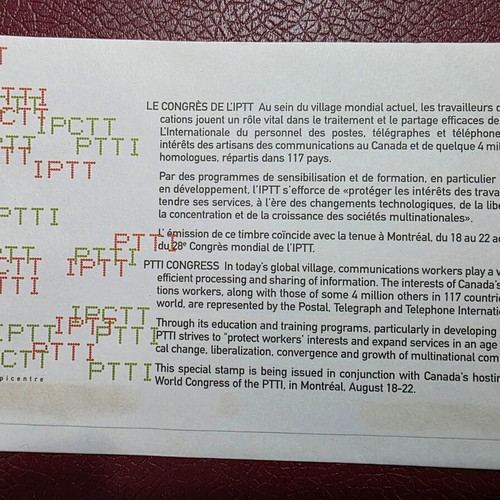 TTI
IPCTT
PTTI
IPTT
PTTI
PTTI
PTTI
IPTT
IPCTT
IPTT
PTTI
PTTI
PTTI
picentre
LE CONGRÈS DE L'IPTT Au sein du village mondial actuel, les travailleurs
cations jouent un rôle vital dans le traitement et le partage efficaces de
L'Internationale du personnel des postes, télégraphes et téléphone
intérêts des artisans des communications au Canada et de quelque 4 mil
homologues, répartis dans 117 pays.
Par des programmes de sensibilisation et de formation, en particulier
en développement, l'IPTT s'efforce de «protéger les intérêts des trava
tendre ses services, à l'ère des changements technologiques, de la lib
la concentration et de la croissance des sociétés multinationales».
L'émission de ce timbre coïncide avec la tenue à Montréal, du 18 au 22 a
du 28e Congrès mondial de l'IPTT.
PTTI CONGRESS In today's global village, communications workers play a v
efficient processing and sharing of information. The interests of Canada's
tions workers, along with those of some 4 million others in 117 countrie
world, are represented by the Postal, Telegraph and Telephone Internati
Through its education and training programs, particularly in developing
PTTI strives to "protect workers' interests and expand services in an age
cal change, liberalization, convergence and growth of multinational com
This special stamp is being issued in conjunction with Canada's hostin
World Congress of the PTTI, in Montréal, August 18-22.